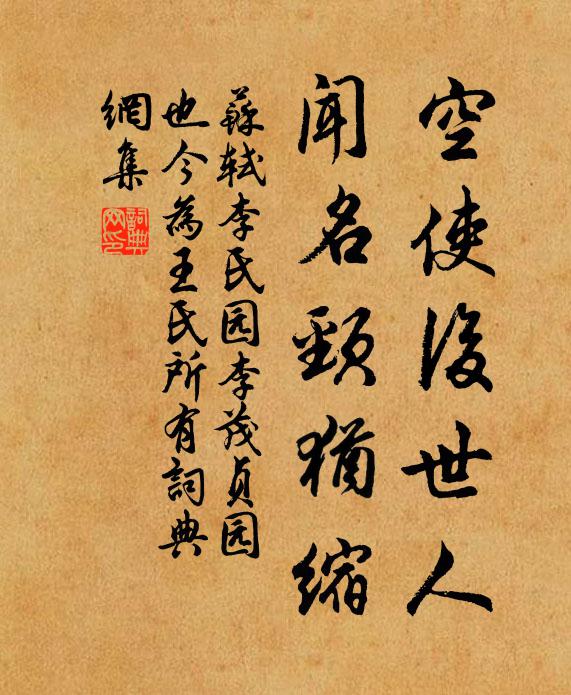 空使後世人
聞名頸猶縮
蘇軾李氏园李茂貞园
也今為王氏所有詞典
網集
詞典
网印